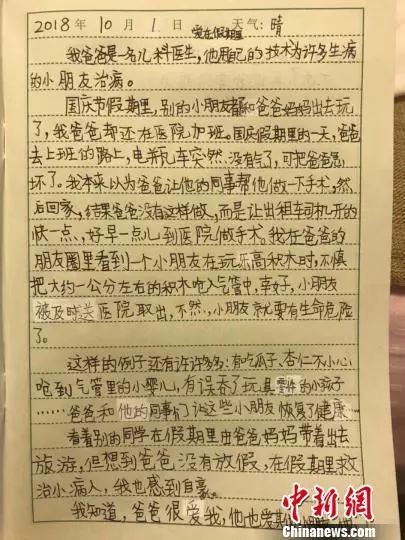 2018年10月1日 爱在假期里 天气:晴
我爸爸是一名儿科医生,他用自己的技术为许多生病
的小朋友治病。
国庆节假期里,别的小朋友都和爸爸妈妈出去玩
了,我爸爸却还在医院加班。国庆假期里的一天,爸爸
去上班的路上,电瓶车突然没有气了,可把爸爸急
坏了。我本来以为爸爸让他的同事帮他做一下手术,然
后回家,结果爸爸没有这样做,而是让出租车司机开的
快一点,好早一点儿到医院做手术。我在爸爸的
朋友圈里看到一个小朋友在玩乐高积木时,不慎
把大约一公分左右的积木呛入气管中,幸好,小朋友
被及时送医院取出,不然,小朋友就要有生命危险
了。
这样的例子还有许许多多:有吃瓜子、杏仁不小心
呛到气管里的小婴儿,有误吞了玩具零件的小孩子
……爸爸和他的同事们让这些小朋友恢复了健康…
看着别的同学在假期里由爸爸妈妈带着出去
旅游,但想到爸爸,没有放假,在假期里救
治小病人,我也感到自豪。
我知道,爸爸很爱我,他也爱
中新网